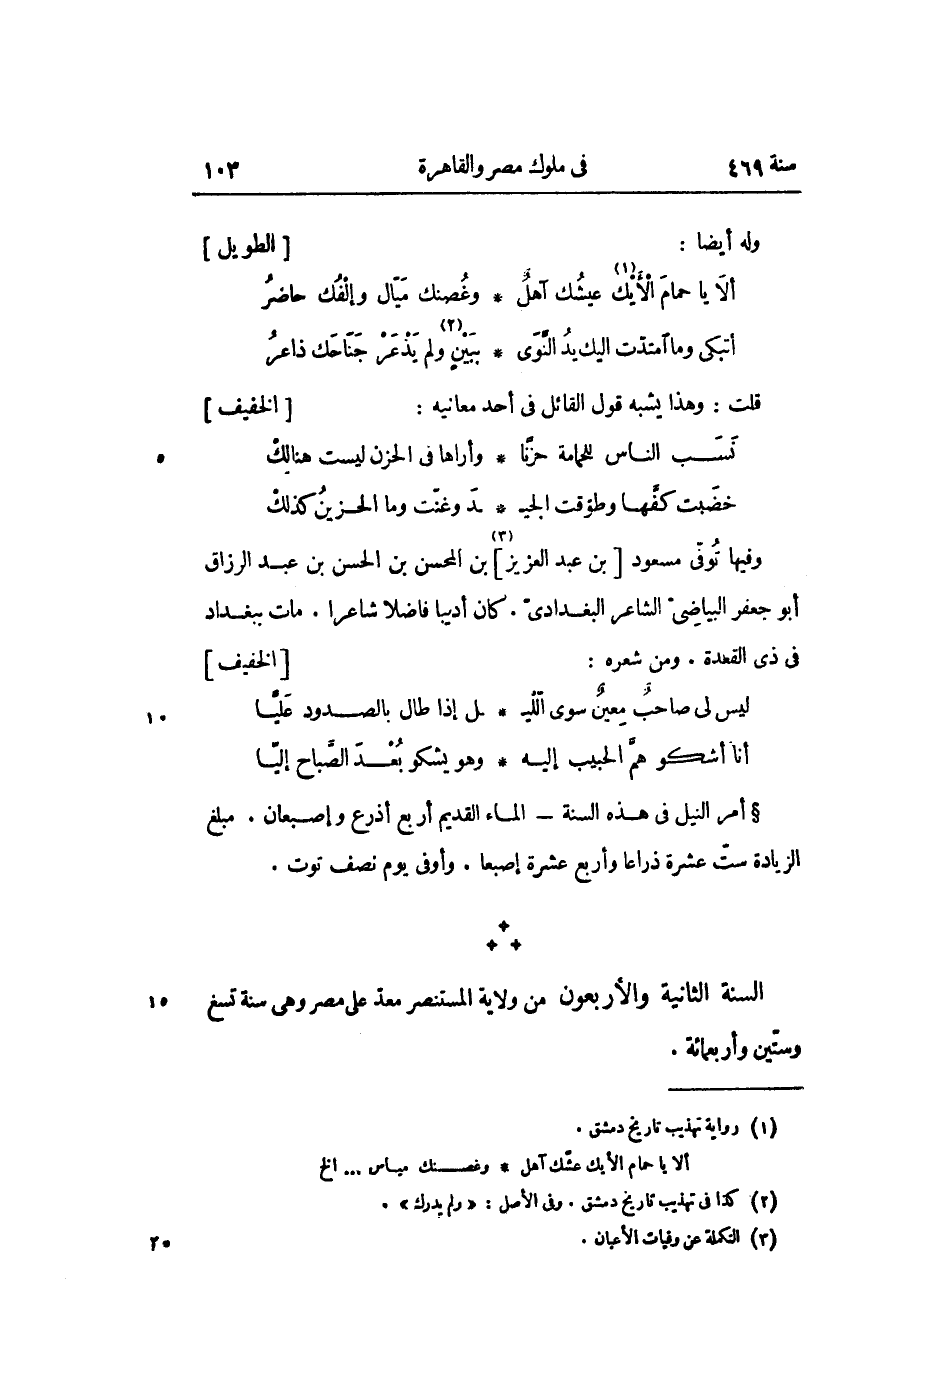 سنة ٤٦٩ فى ملوك مصر والقاهرة ١٠٣
وله أيضا : [ الطويل ]
ألَا يا حمامَ الْأَيْك (١) عيشُك آهلٌ * وغُصنك ميّال وإلْفُك حاضرُ
أتبكى وما آمتدّت اليك يدُ النَّوَى * بَبَيْنٍ (٢) ولم يَذْعَرْ جَنَاحَك ذاعرُ
قلت : وهذا يشبه قول القائل فى أحد معانيه : [ الخفيف ]
نَسَب الناس للحمامة حزنًا * وأراها فى الحزن ليست هنالِكْ ٥
خضَبت كفَّها وطوّقت الجيـ * ـدَ وغنّت وما الحزينُ كذلكْ
وفيها تُوفّى مسعود [ بن عبد العزيز ] (٣) بن المحسن بن الحسن بن عبد الرزاق
أبو جعفر البياضىّ الشاعر البغدادىّ . كان أديبا فاضلا شاعرا . مات ببغداد
فى ذى القعدة . ومن شعره : [ الخفيف ]
ليس لى صاحبٌ مِعينٌ سوى اَللَّيـ * ـل إذا طال بالصدود عَلَيَّا ١٠
أنا أشكو همَّ الحبيب إليه * وهو يشكو بُعْدَ الصَّباح إليّا
§ أمر النيل فى هذه السنة — الماء القديم أربع أذرع وإصبعان . مبلغ
الزيادة ستّ عشرة ذراعا وأربع عشرة إصبعا . وأوفى يوم نصف توت .
السنة الثانية والأربعون من ولاية المستنصر معدّ على مصر وهى سنة تسع ١٥
وستّين وأربعمائة .
(١) رواية تهذيب تاريخ دمشق .
ألا يا حمام الأيك عشّك آهل * وغصنك مياس ... الخ
(٢) كذا فى تهذيب تاريخ دمشق . وفى الأصل : « ولم يدرك » .
(٣) التكملة عن وفيات الأعيان . ٢٠